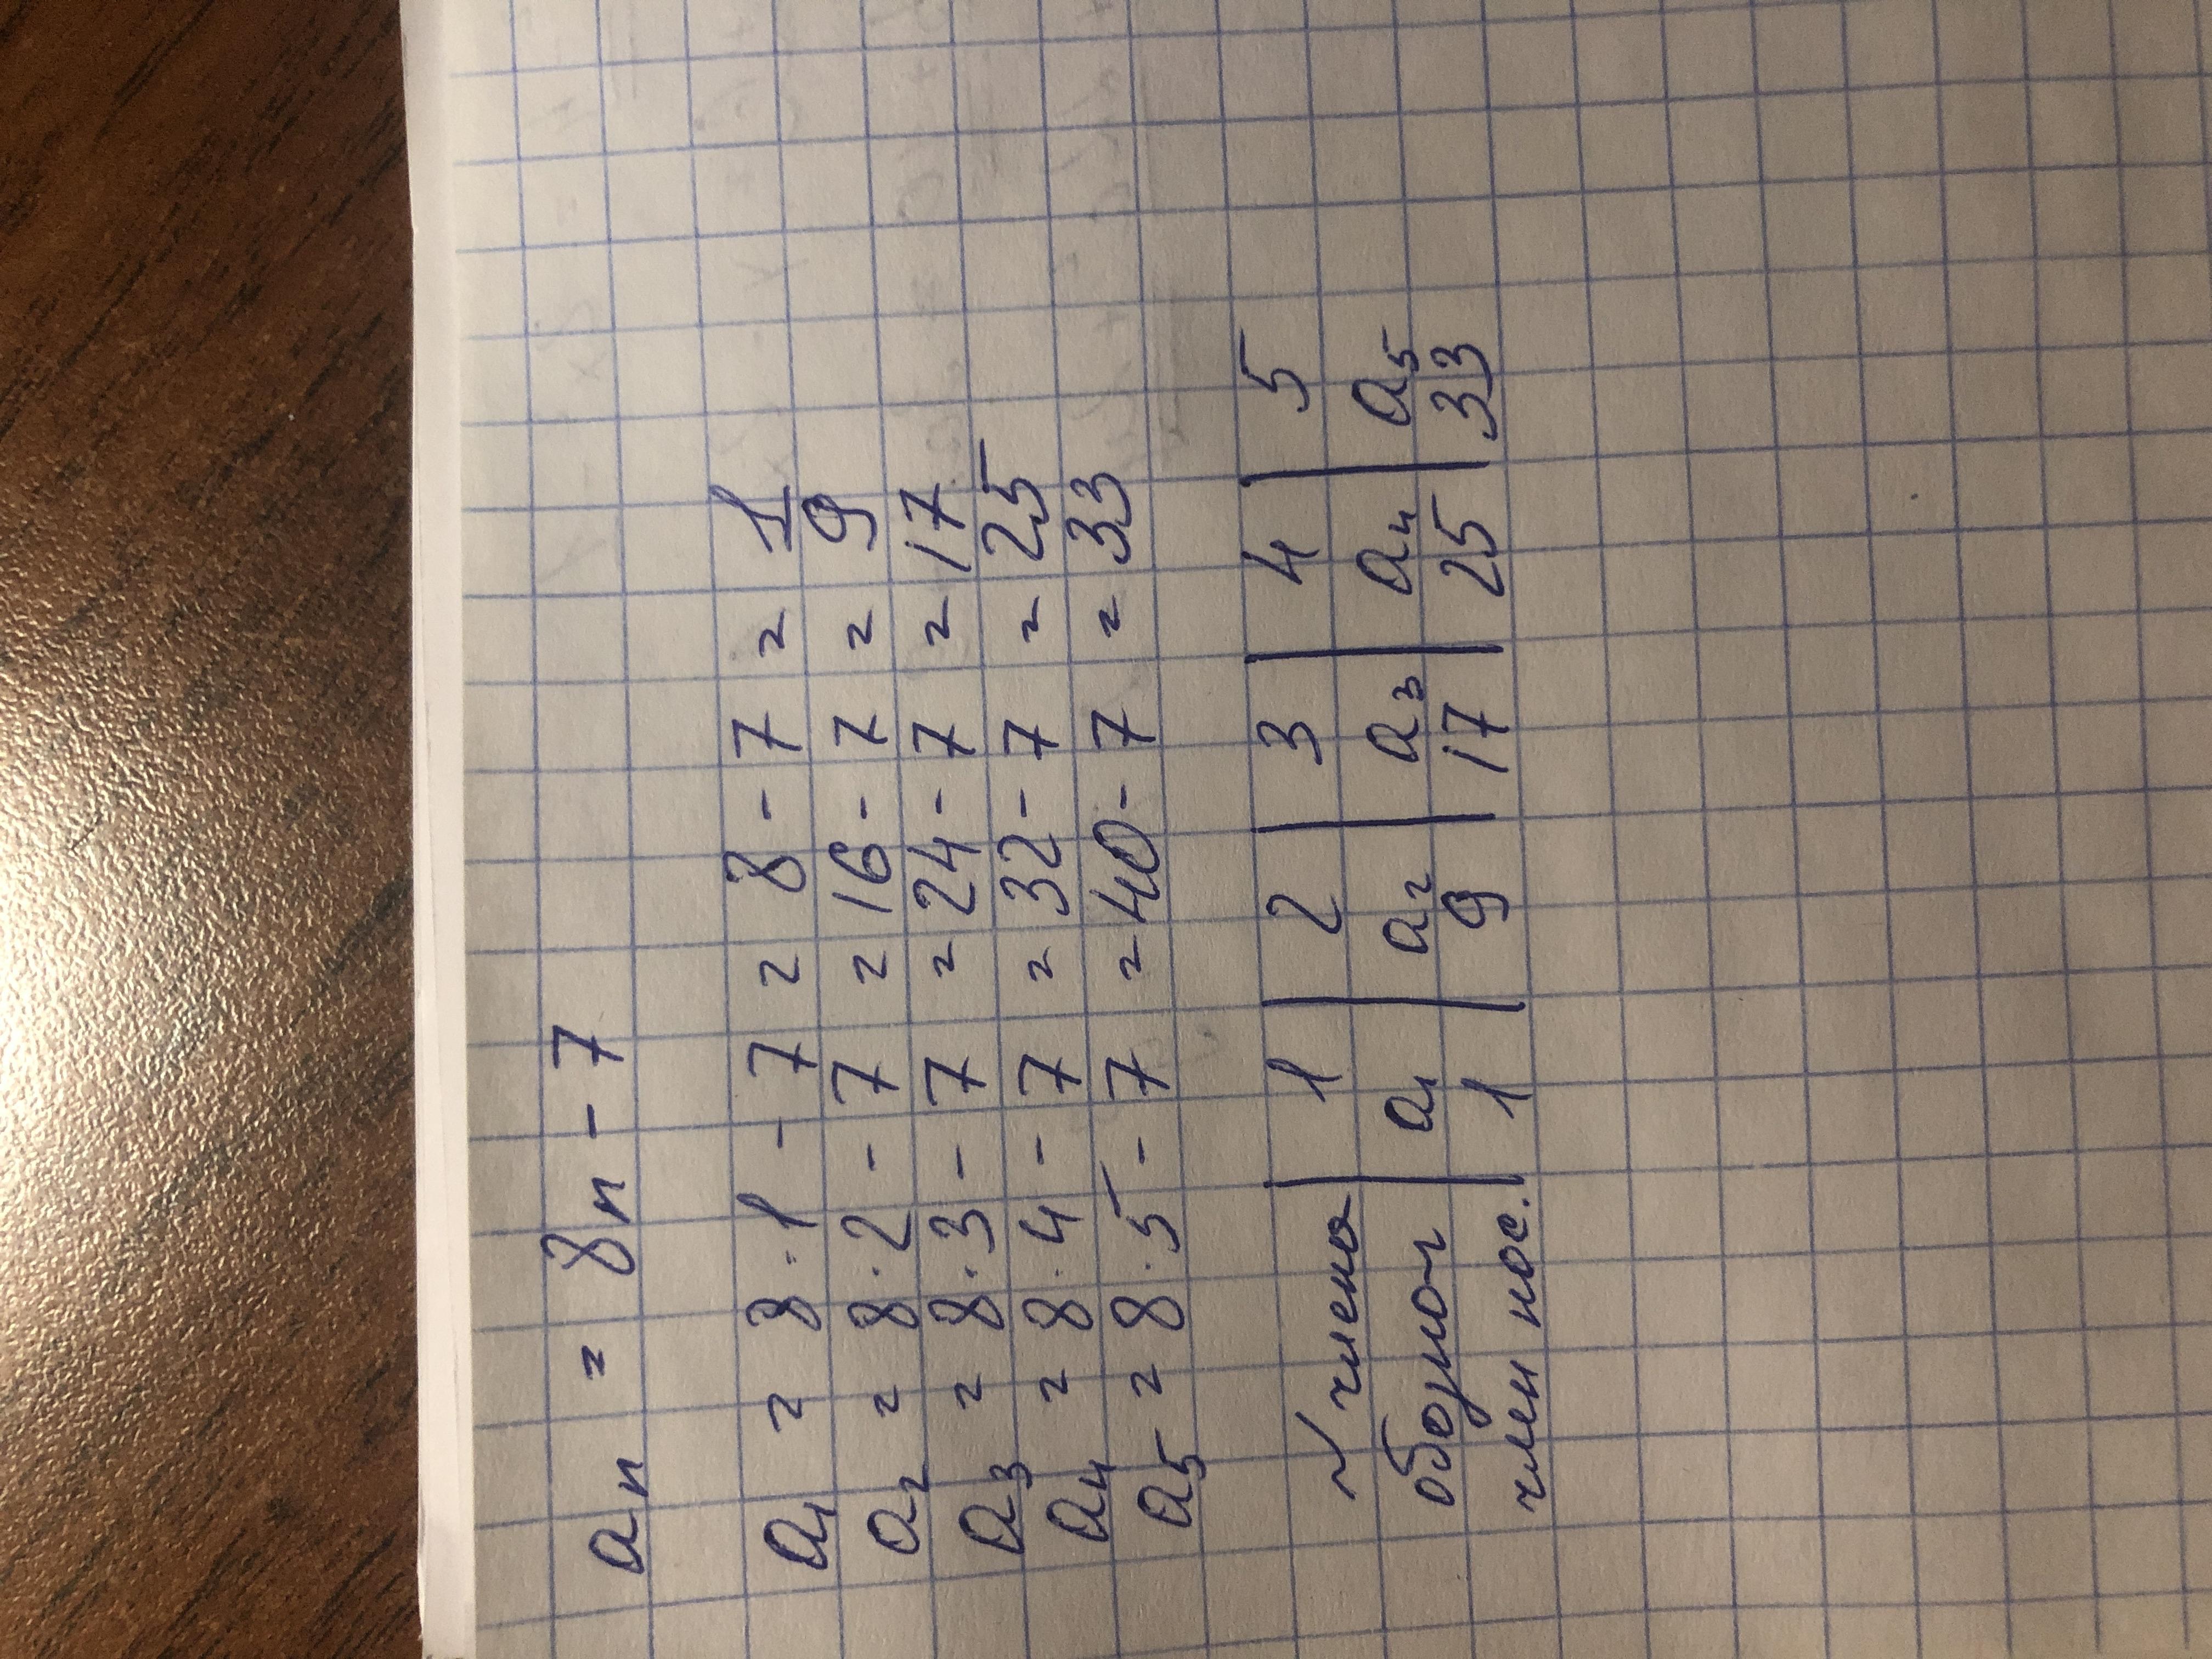 an = 8n - 7
a1 = 8·1 - 7 = 8 - 7 = 1
a2 = 8·2 - 7 = 16 - 7 = 9
a3 = 8·3 - 7 = 24 - 7 = 17
a4 = 8·4 - 7 = 32 - 7 = 25
a5 = 8·5 - 7 = 40 - 7 = 33
№ члена | 1 | 2 | 3 | 4 | 5
обознач | a1 | a2 | a3 | a4 | a5
член пос. | 1 | 9 | 17 | 25 | 33